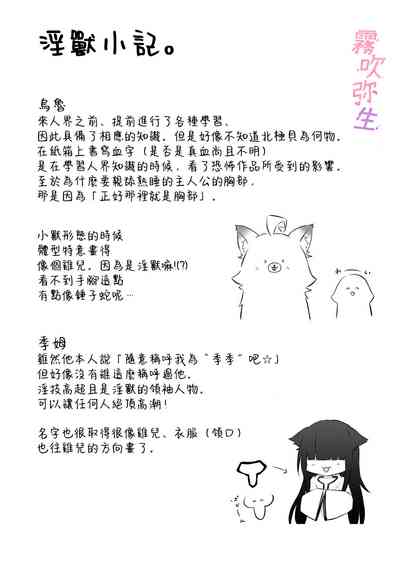 淫獸小記。
霧吹弥生
烏魯
來人界之前、提前進行了各種學習、
因此具備了相應的知識，但是好像不知道北種貝為何物，
在紙箱上書寫血字（是否是真血尚且不明）
是在學習人界知識的時候，看了恐怖作品所受到的影響，
至於為什麼要親舔熟睡的主人公的胸部，
那是因為「正好那裡就是胸部」，
小獸形態的時候
體型特意畫得
像個雞兒，因為是淫獸嘛!(?)
看不到手腳這點
有點像錘子蛇呢…
季姆
雖然他本人說「隨意稱呼我為“季季”吧☆」
但好像沒有誰這麼稱呼過他，
淫技高超且是淫獸的領袖人物，
可以讓任何人絕頂高潮！
名字也很取得很像雞兒、衣服（領口）
也往雞兒的方向畫了．